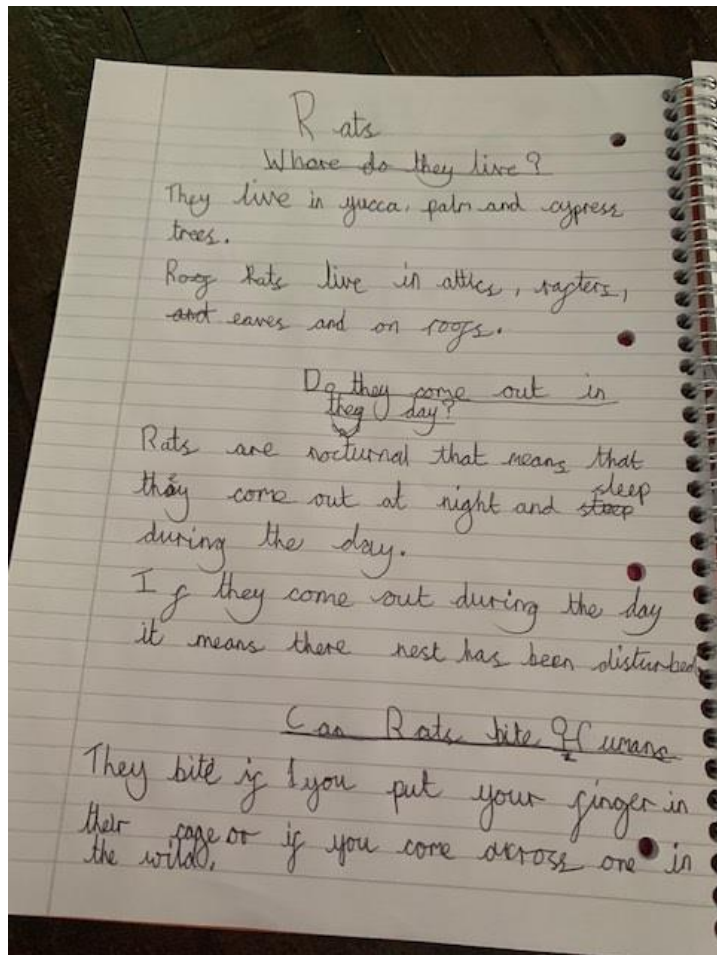 Rats
Whare do they live?
They live in yucca, palm and cypress
trees.
Roof Rats live in attics, rafters,
and eaves and on roofs.
Do they come out in
they day?
Rats are nocturnal that means that
they come out at night and steep sleep
during the day.
If they come out during the day
it means there nest has been disturbed
Can Rats bite Humans
They bite if you put your finger in
their cage or if you come across one in
the wild.